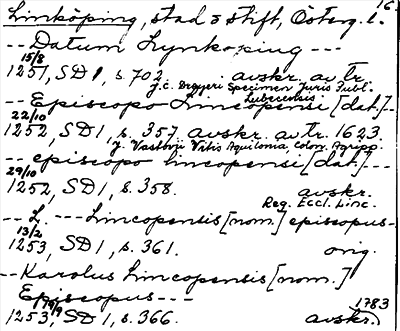 16.
Linköping, stad o stift, Österg. l.
-- Datum Lynkoping ---
15/8
1251, SD 1, s. 702. avskr. av tr.
J.C. Dreyeri Specimen Juris Publ.
Lubecensis.
-- Episcopo Lincopensi [dat.] --
22/10
1252, SD 1, s. 357. avskr. av tr. 1623.
J. Vastovii Vitis Aquilonia, colon. Agripp.
-- episcopo lincopensi [dat.] ---
29/10
1252, SD 1, s. 358. avskr.
Reg. Eccl. Linc.
-- L. --- Lincopensis [nom.] episcopus -
13/2
1253, SD 1, s. 361. orig.
-- Karolus Lincopensis [nom.]
Episcopus ---
19/9 1783
1253, SD 1, s. 366. avskr.